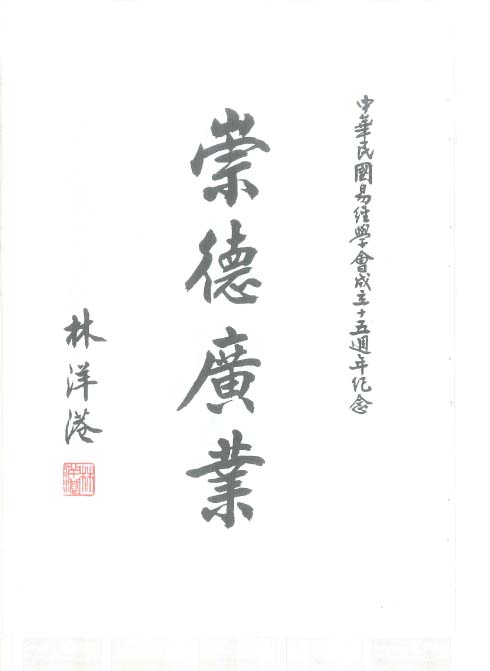 中華民國易經學會成立十五週年紀念
崇德廣業
林洋港
林洋港